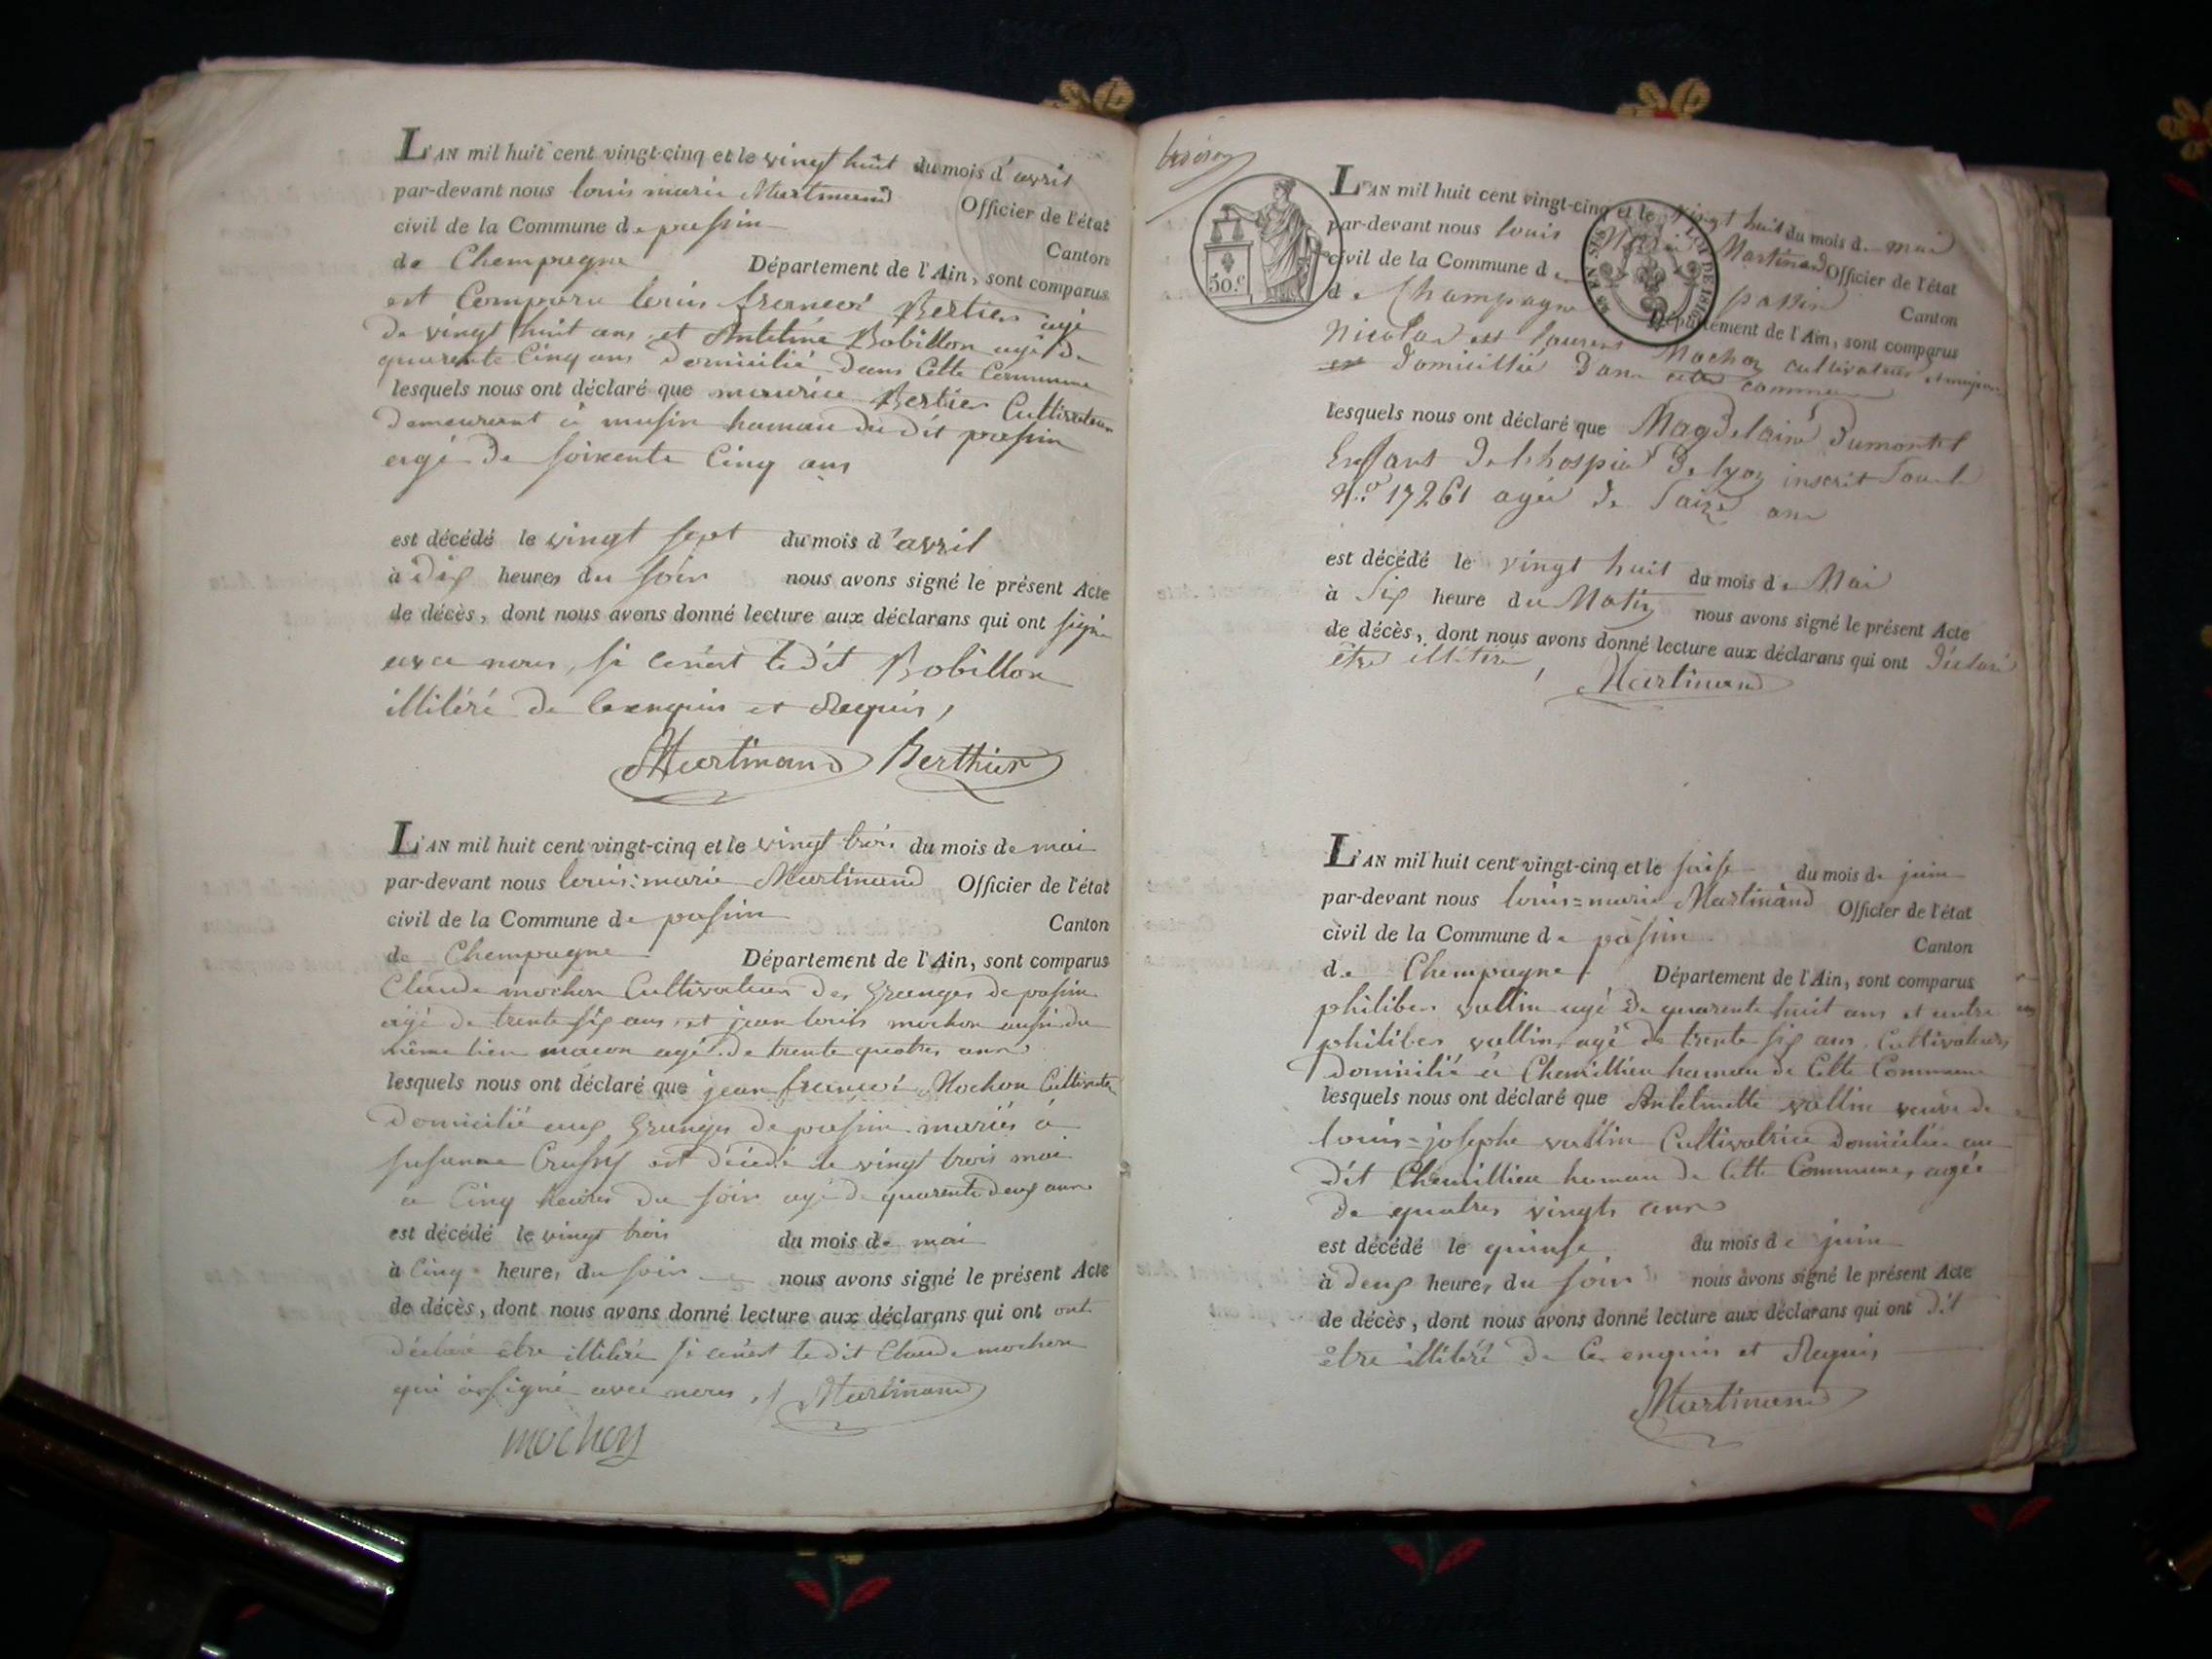 L'AN mil huit cent vingt-cinq et le vingt huit du mois d'avril
par-devant nous louis marie Martinand Officier de l'état
civil de la Commune de passin Canton
de Champagne Département de l'Ain, sont comparus
est Comparu louis francois Bertier agé
de vingt huit ans et Antelme Bobillon agé de
quarente Cinq ans domicilié dans Cette Commune
lesquels nous ont déclaré que maurice Bertier Cultivateur
demeurant à musin hamau du dit passin
agé de soixente Cinq ans
est décédé le vingt sept du mois d'avril
à dix heures du soir nous avons signé le présent Acte
de décès, dont nous avons donné lecture aux déclarans qui ont signé
avec nous, si cenest le dit Bobillon
illitéré de Ce enquis et Requis,
Martinand Berthier
L'AN mil huit cent vingt-cinq et le vingt trois du mois de mai
par-devant nous louis=marie Martinand Officier de l'état
civil de la Commune de passin Canton
de Champagne Département de l'Ain, sont comparus
Claude mochon Cultivateur des Granges de passin
agé de trente six ans, et jean louis mochon aussi du
même lieu macon agé de trente quatres ans
lesquels nous ont déclaré que jean francois Mochon Cultivateur
domicilié aux Granges de passin mariés à
susanne est décédé le vingt trois mai
à Cinq heures du soir agé de quarente deux ans
est décédé le vingt trois du mois de mai
à Cinq heures du soir nous avons signé le présent Acte
de décès, dont nous avons donné lecture aux déclarans qui ont ont
déclaré etre illitéré si cenest le dit Claude mochon
qui a signé avec nous, Martinand
mochon
L'AN mil huit cent vingt-cinq et le vingt huit du mois de mai
par-devant nous louis Marie Martinand Officier de l'état
civil de la Commune de passin Canton
50.c
de Champagne Département de l'Ain, sont comparus
Nicolas et laurent Mochon cultivateur
domicillié dans cette commune
lesquels nous ont déclaré que Magdelaine Dumontel
Enfant de l'hospice de lyon inscrit sous le
N.o 17261 agée de saize ans
est décédé le vingt huit du mois de Mai
à six heure du Matin nous avons signé le présent Acte
de décès, dont nous avons donné lecture aux déclarans qui ont déclaré
être illitéré, Martinand
L'AN mil huit cent vingt-cinq et le saise du mois de juin
par-devant nous louis=marie Martinand Officier de l'état
civil de la Commune de passin Canton
de Champagne Département de l'Ain, sont comparus
philiber vallin agé de quarente huit ans et autre
philiber vallin agé de trente six ans Cultivateurs
domicilié à Chemillieu hamau de Cette Commune
lesquels nous ont déclaré que Antelmette vallin veuve de
louis=josephe vallin Cultivatrice domiciliée au
dit Chemillieu hamau de Cette Commune, agée
de quatres vingts ans
est décédé le quinse du mois de juin
à deux heures du soir nous avons signé le présent Acte
de décès, dont nous avons donné lecture aux déclarans qui ont dit
être illitéré de Ce enquis et Requis
Martinand